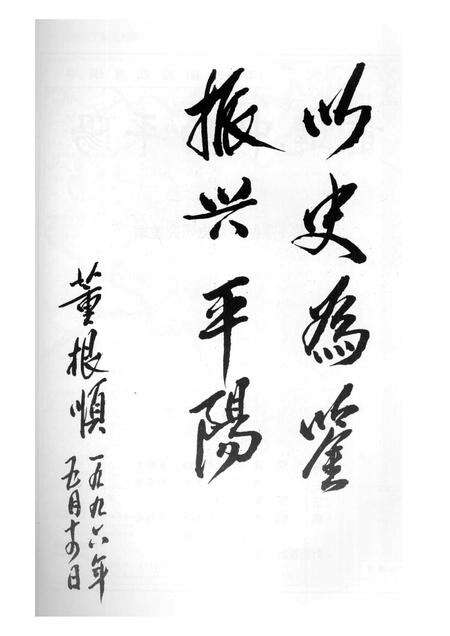 以史為鉴
振兴平陽
董根順
一九九六年
五月十四日